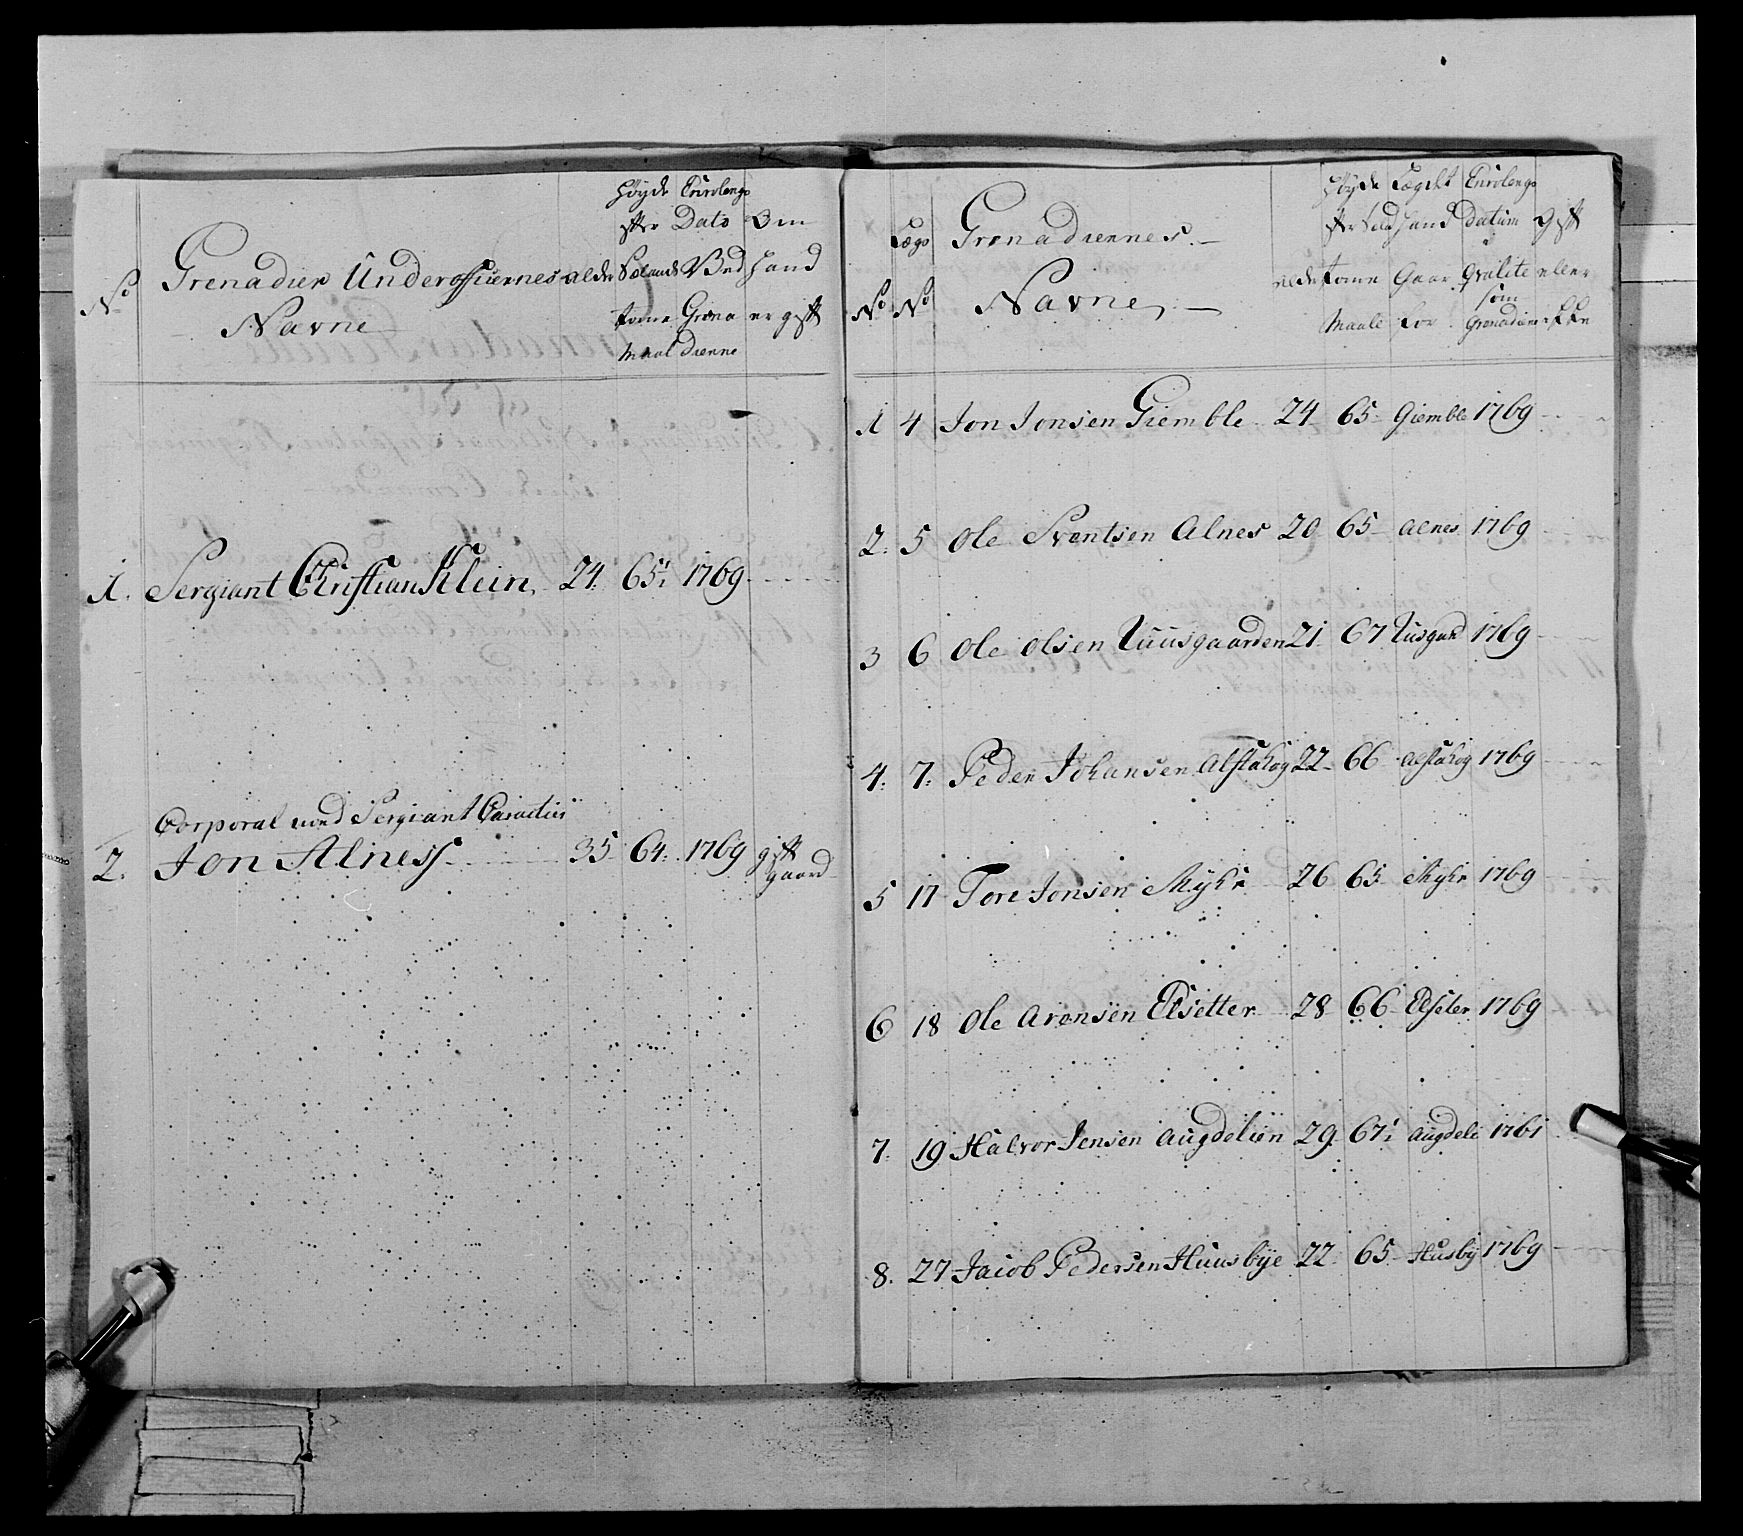 No
Grenadier Underofficernes
Navne
alder
Høyde efter Sælands tome Maal
Enrolerings Dato Ved Grenadierne
Om hand er gift
1. Sergiant Christian Klein 24. 65½ 1769
Corporal med Sergiant Caracter
2. Jon Alness 35 64. 1769 gift gaard
No
Lægs No
Grenadiernes
Navne
alder
Høyde tome Maale
Lægdet hand for
Enrolerings datum qvalite som Grenadier
gift eller ikke
1 4 Jon Jonsen Giemble 24 65 Giemble 1769
2. 5 Ole Sventsen Alnes 20 65 alnes 1769
3 6 Ole Olsen Tuusgaarden 21 67 Tusgard 1769
4. 7. Peder Johansen Alstahog 22 66 alstahog 1769
5 17 Tore Jonsen Myhr 26 65 Myhr 1769
6 18 Ole Aronsen Elsetter 28 66 Elseter 1769
7. 19 Halvor Jensen augdelien 29 67½ augdeli 1761
8. 27 Jacob Pedersen Huusbye 22 65 Husby 1769